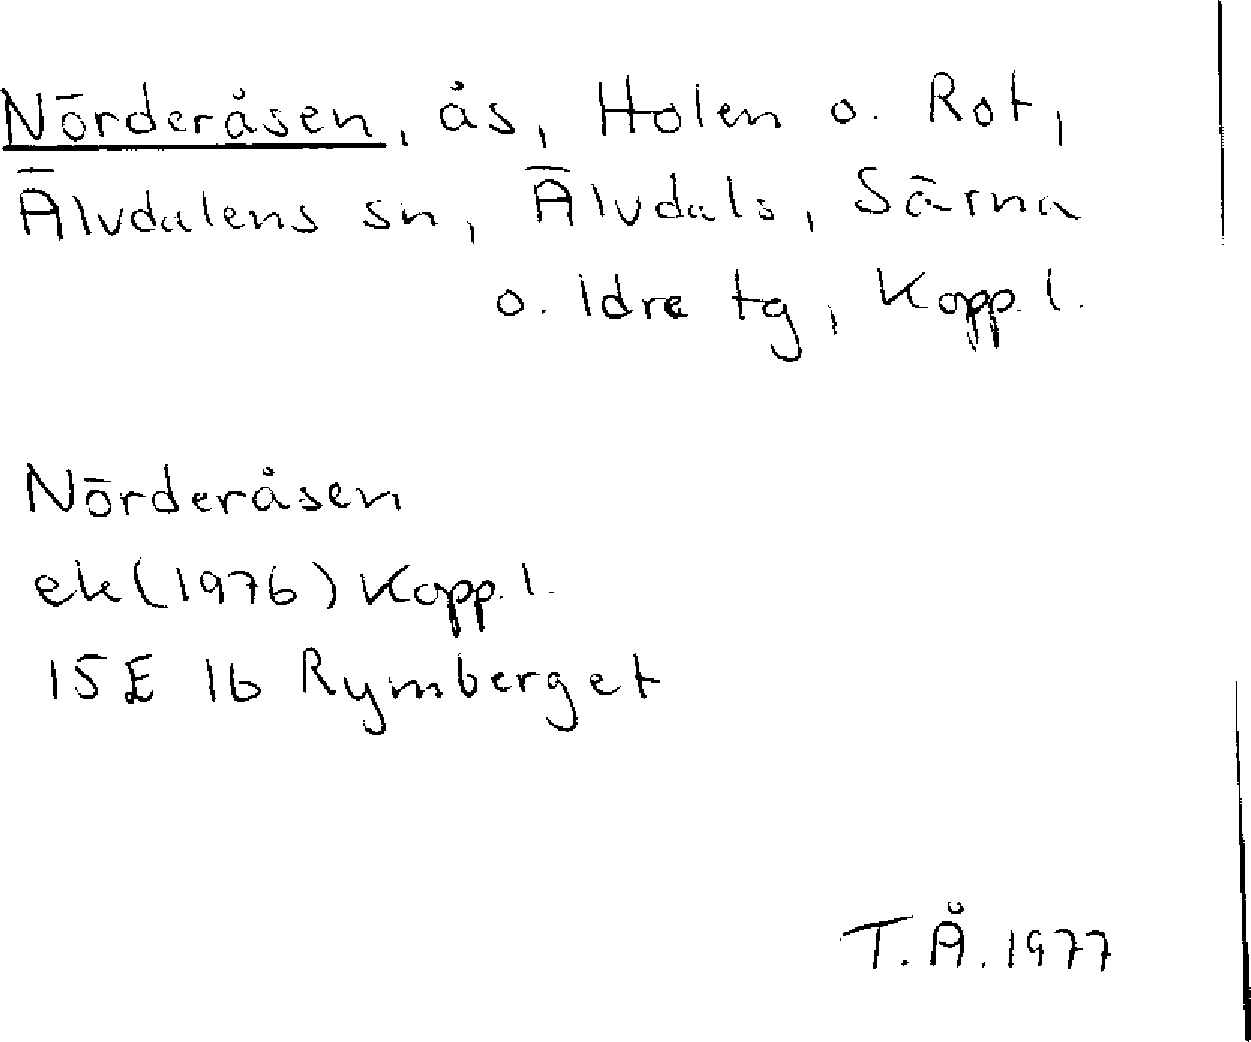 Nörderåsen, ås, Holen o. Rot,
Älvdalens sn, Älvdals, Särna
o. Idre tg, Kopp. l.
Nörderåsen
ek (1976) Kopp. l.
15E 1b Rymberget
T.Å. 1977